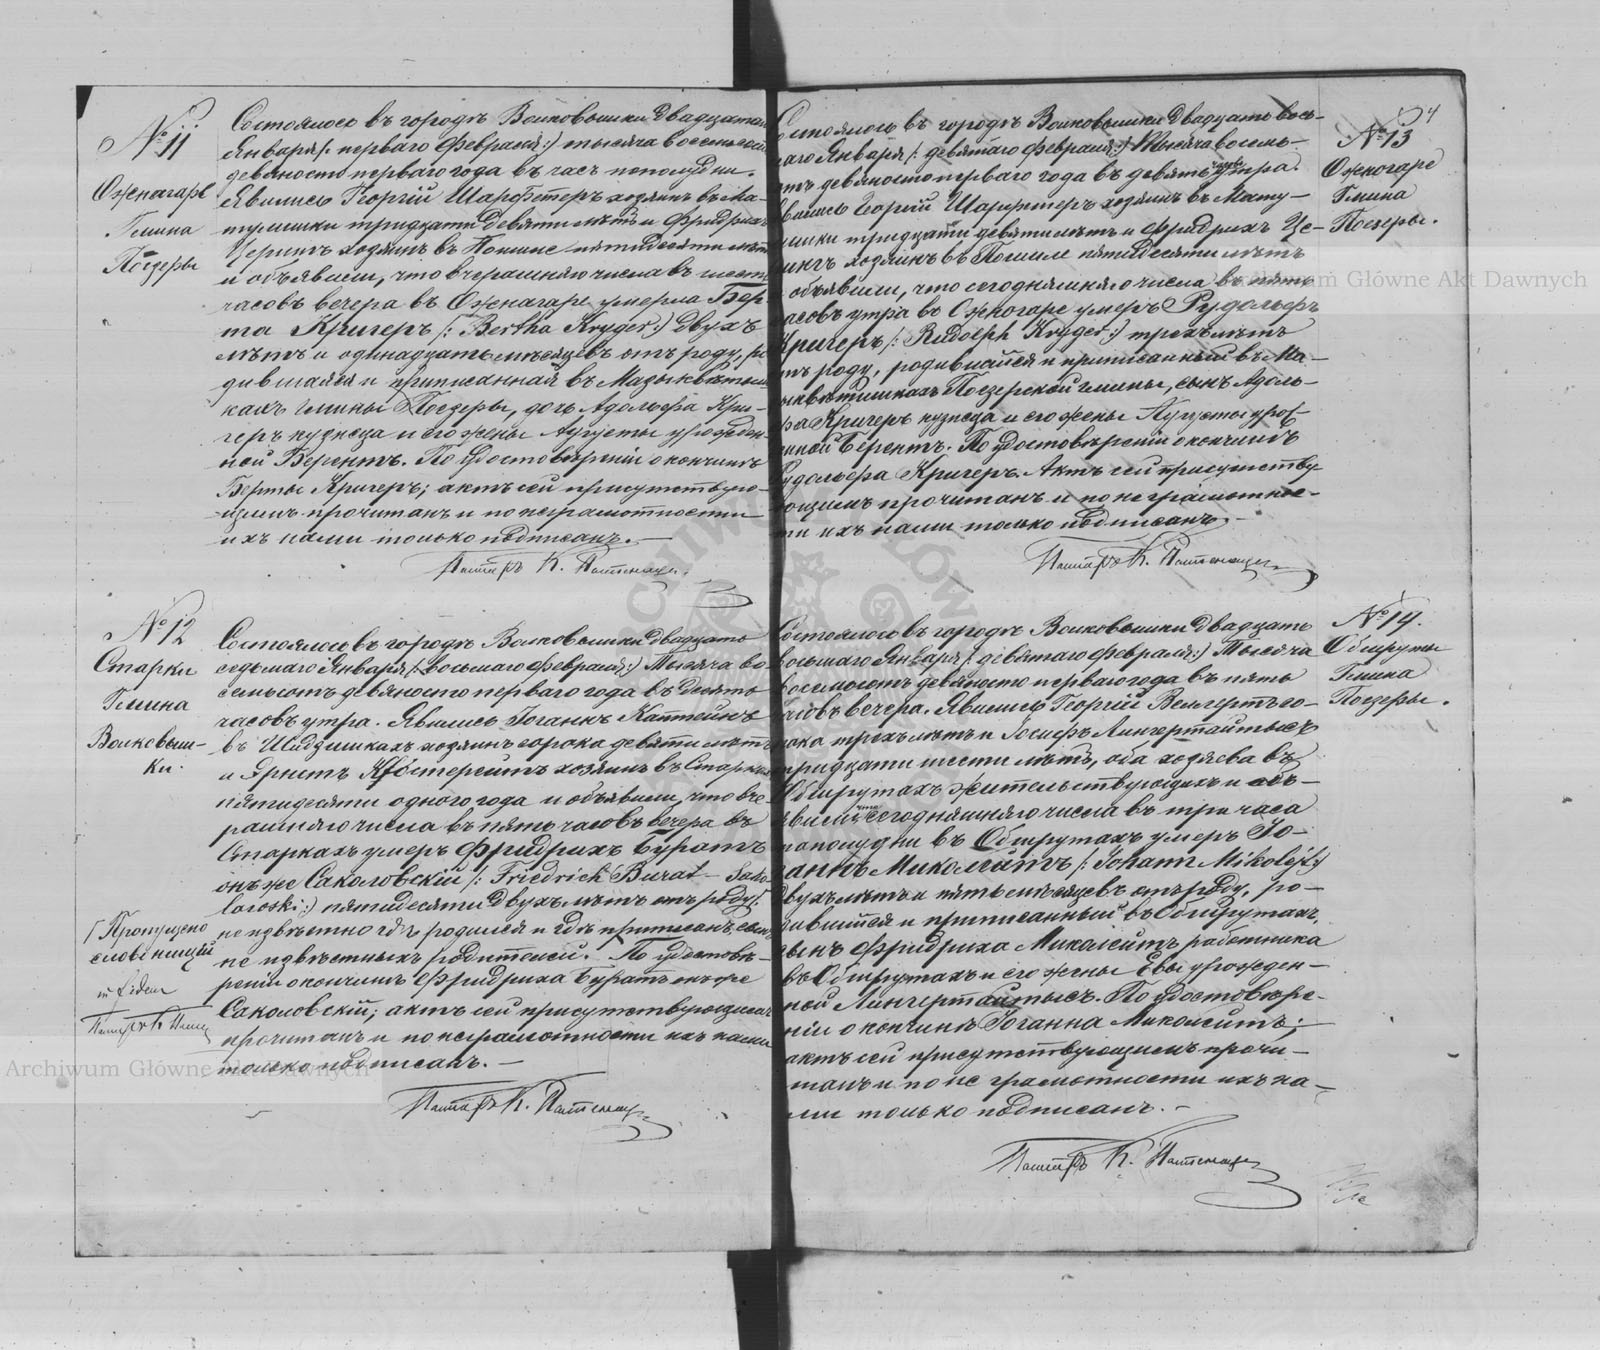 № 11
Ожнагаре
Гмина
Поезеры
Состоялось въ городѣ Волковышки двадцатаго
Января /: перваго Февраля :/ тысяча восемьсотъ
девяносто перваго года въ часъ пополудни.
Явились Георгій Шарфетеръ хозяинъ въ Ма-
тулишки тридцати девяти лѣтъ и Фридрихъ
хозяинъ въ пятидесяти лѣтъ
и объявили, что вчерашняго числа въ шесть
часовъ вечера въ Ожнагаре умерла Бер-
та Кригеръ /: Bertha Kryger :/ двухъ
лѣтъ и одинадцать мѣсяцевъ отъ роду, ро
дившаяся и приписанная въ
кахъ гмины Поезеры, дочь Адольфа Кри-
геръ кузнеца и его жены Аугусты урожден-
ной Берентъ. По удостовѣреніи о кончинѣ
Берты Кригеръ; актъ сей присутствую-
щимъ прочитанъ и по неграмотности
ихъ нами только подписанъ.
Пасторъ К.
№ 12
Старки
Гмина
Волковыш-
ки.
Состоялось въ городѣ Волковышки двадцать
седьмаго Января /: восьмаго Февраля :/ Тысяча во
семьсотъ девяносто перваго года въ десять
часовъ утра. Явились Іоганъ Каптейнъ
въ хозяинъ сорока девяти лѣтъ
и Эрнстъ хозяинъ въ Старкахъ
пятидесяти одного года и объявили, что вче
рашняго числа въ пять часовъ вечера въ
Старкахъ умеръ Фридрихъ Буратъ
онъ же Саколовскій /: Friedrich Burat - Soko
lowski :/ пятидесяти двухъ лѣтъ отъ роду
неизвѣстно гдѣ родился и гдѣ приписанъ, сынъ
неизвѣстныхъ родителей. По удостовѣ-
реніи о кончинѣ Фридриха Буратъ онъ же
Саколовскій; актъ сей присутствующимъ
прочитанъ и по неграмотности ихъ нами
только подписанъ. —
Пасторъ К.
Пропущено
слово
in fidem
Пасторъ К.
54
№ 13
Ожногаре
Гмина
Поезеры.
Состоялось въ городѣ Волковышки двадцать вось-
маго Января /: девятаго Февраля :/ Тысяча восемь-
сотъ девяносто перваго года въ девять часовъ утра.
Явились Георгій Шарфетеръ хозяинъ въ Мату-
лишки тридцати девяти лѣтъ и Фридрихъ Це-
рингъ хозяинъ въ пятидесяти лѣтъ
и объявили, что сегодняшняго числа въ пять
часовъ утра въ Ожногаре умеръ Рудольфъ
Кригеръ /: Rudolph Kryger :/ трехъ лѣтъ
отъ роду, родившійся и приписанный въ Ма-
Поезерской гмины, сынъ Адоль-
фа Кригеръ кузнеца и его жены Аугусты урож-
денной Берентъ. По удостовѣреніи о кончинѣ
Рудольфа Кригеръ. Актъ сей присутству
ющимъ прочитанъ и по неграмотнос-
ти ихъ нами только подписанъ. —
Пасторъ К.
№ 14.
Обшруты
Гмина
Поезеры.
Состоялось въ городѣ Волковышки двадцать
восьмаго Января /: девятаго Февраля :/ Тысяча
восемьсотъ девяносто перваго года въ пять
часовъ вечера. Явились Георгій Венгертъ со-
рока трехъ лѣтъ и Іосифъ Лингертайтысъ
тридцати шести лѣтъ, оба хозяева въ
Обшрутахъ жительствующіе и объ-
явили что сегодняшняго числа въ три часа
пополудни въ Обшрутахъ умеръ Іо-
ганнъ Миколейтъ /: Johann Mikolejt :/
двухъ лѣтъ и пять мѣсяцевъ отъ роду, ро-
дившійся и приписанный въ Обшрутахъ,
сынъ Фридриха Миколейтъ работника
въ Обшрутахъ и его жены Евы урожден-
ной Лингертайтысъ. По удостовѣре-
ніи о кончинѣ Іоганна Миколейтъ;
актъ сей присутствующимъ прочи-
танъ и по неграмотности ихъ на-
ми только подписанъ. —
Пасторъ К.
Archiwum Główne Akt Dawnych